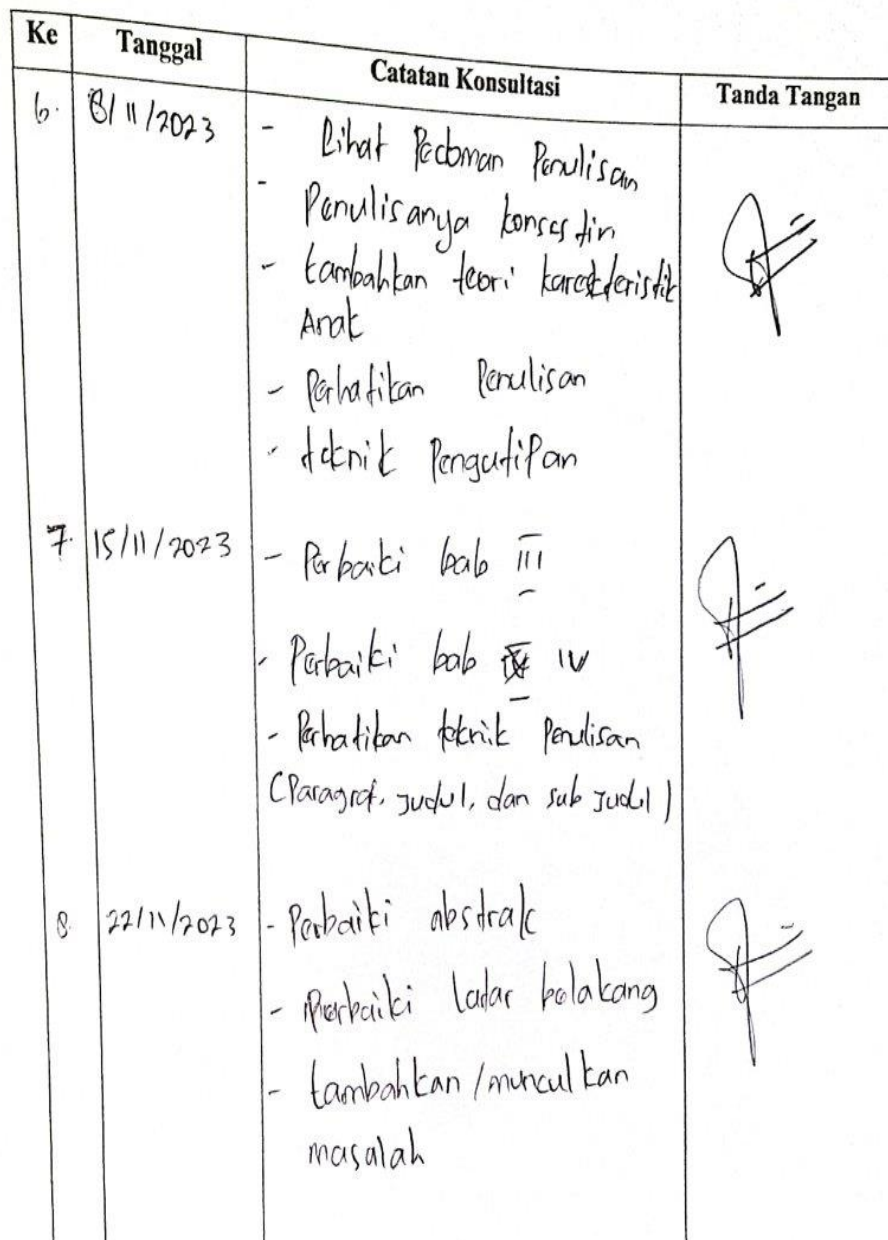 Ke Tanggal Catatan Konsultasi Tanda Tangan
6. 8/11/2023 - Lihat Pedoman Penulisan
- Penulisanya konsestin
- tambahkan teori karakteristik
Anak
- Perhatikan Penulisan
- teknik Pengutipan
7. 15/11/2023 - Perbaiki bab III
- Perbaiki bab IV
- Perhatikan teknik Penulisan
(Paragraf, Judul, dan sub Judul)
8 22/11/2023 - Perbaiki abstrak
- Perbaiki latar belakang
- tambahkan/munculkan
masalah